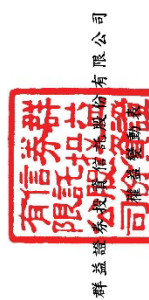 群益證券投資信託股份有限公司
權益變動表
群益證
券投資
信託股份
有限公司